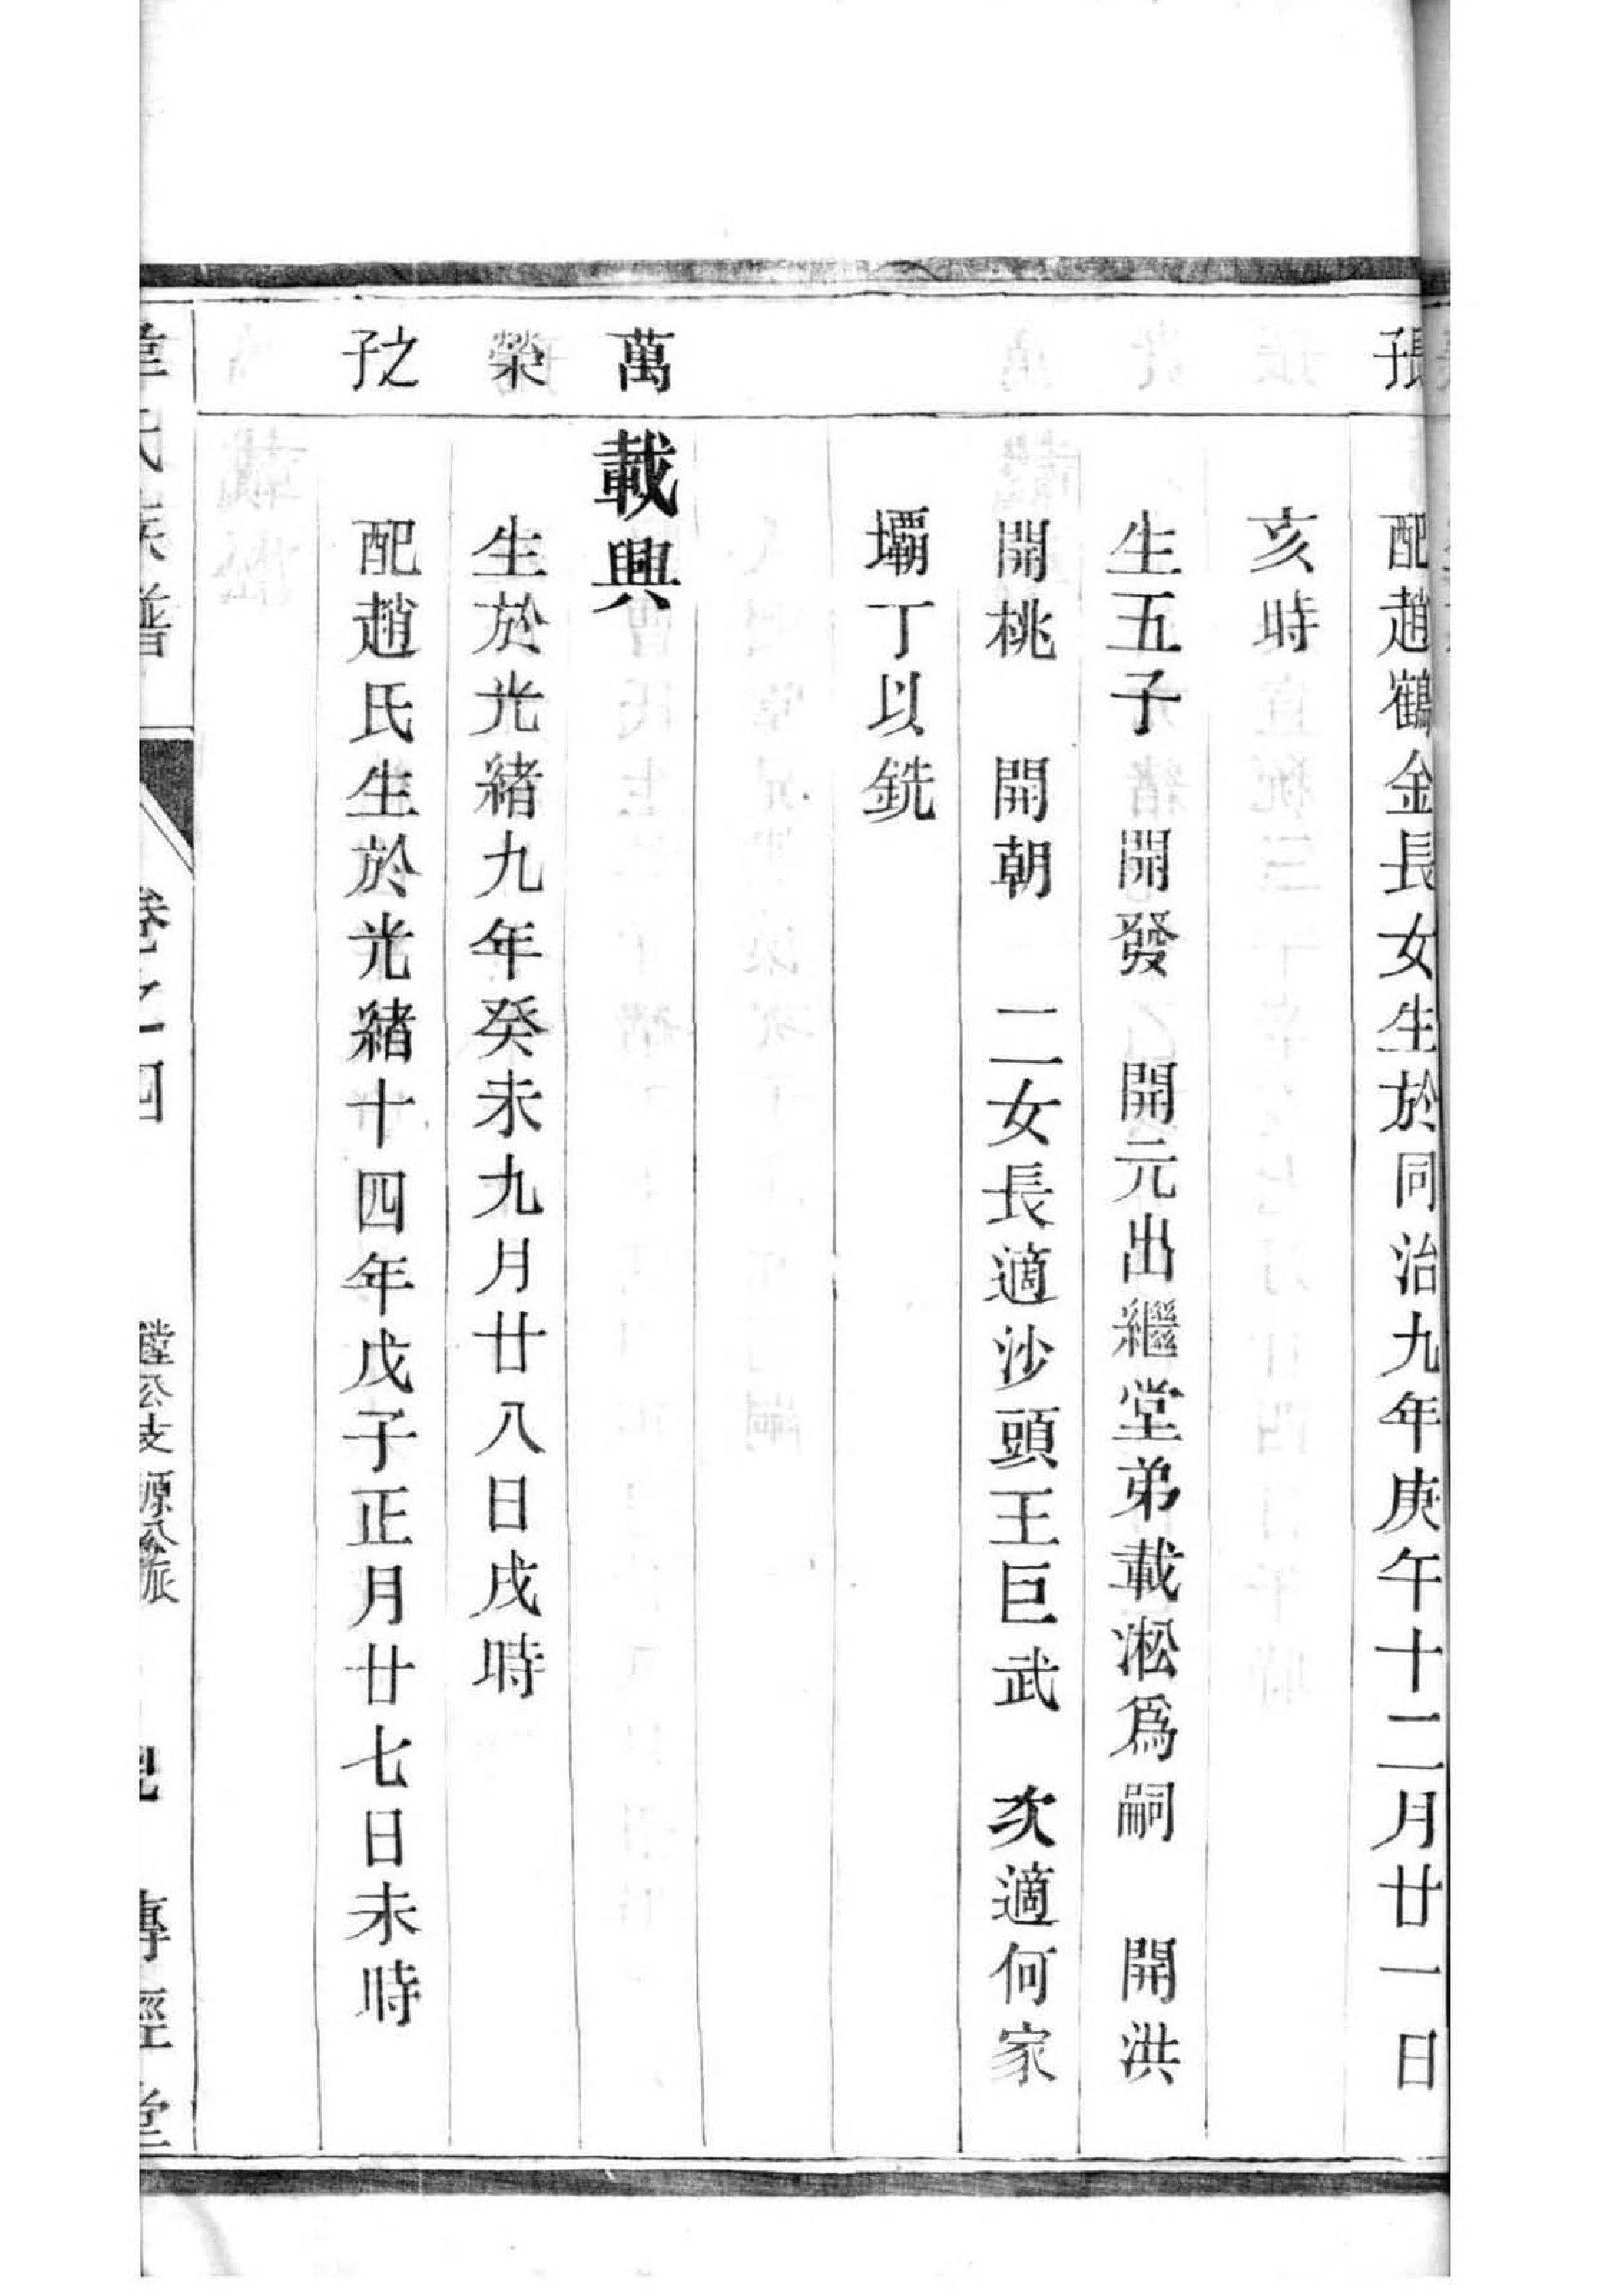 配趙鶴金長女生於同治九年庚午十二月廿一日
亥時
生五子 開發 開元出繼堂弟載淞爲嗣 開洪
開桃 開朝 二女長適沙頭王巨武 次適何家
壩丁以銑
萬
載興
榮
生於光緒九年癸未九月廿八日戌時
之子
配趙氏生於光緒十四年戊子正月廿七日未時
韋氏族譜 卷之四 鏜公支源公派 傳經堂